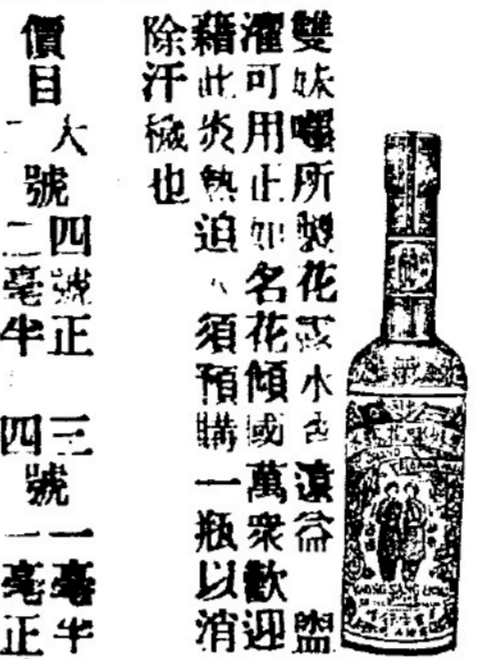 雙妹嚜所製花露水香遠益 盥
濯可用正如名花傾國萬衆歡迎
藉此炎熱迫人須預購一瓶以消
除汗穢也
價目
大號四號正 三號一毫半
二號二毫半 四號一毫正
KWONG SANG HONG